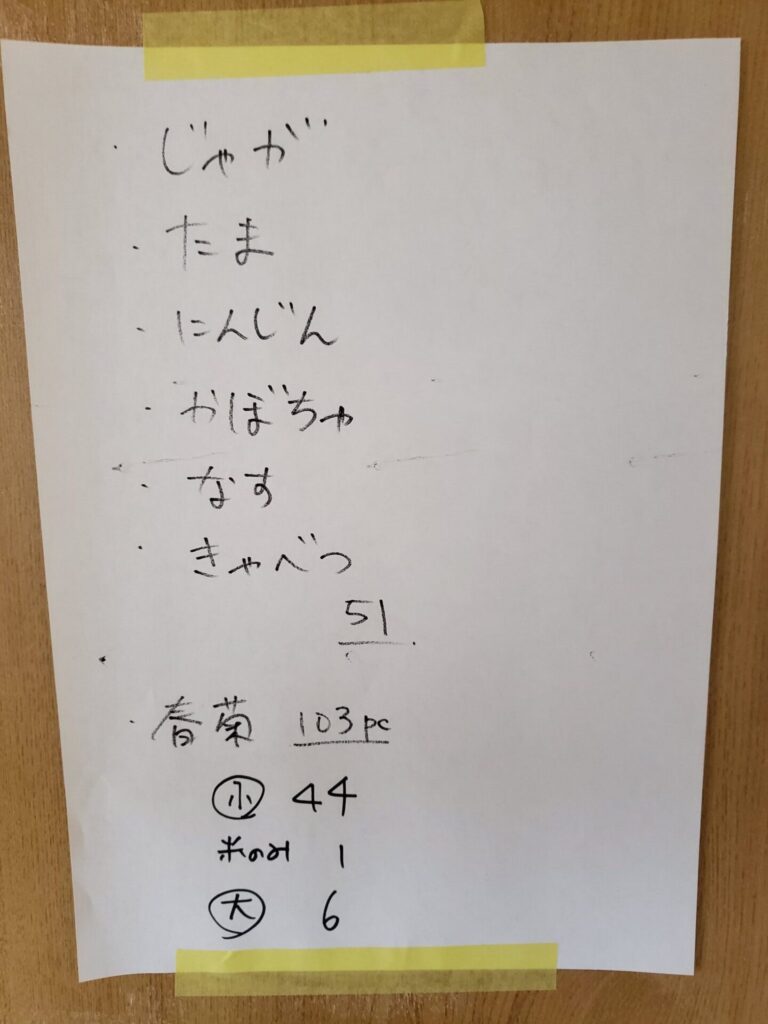 ・じゃが
・たま
・にんじん
・かぼちゃ
・なす
・きゃべつ
51
・春菊 103pc
㊙小 44
米のみ 1
大 6